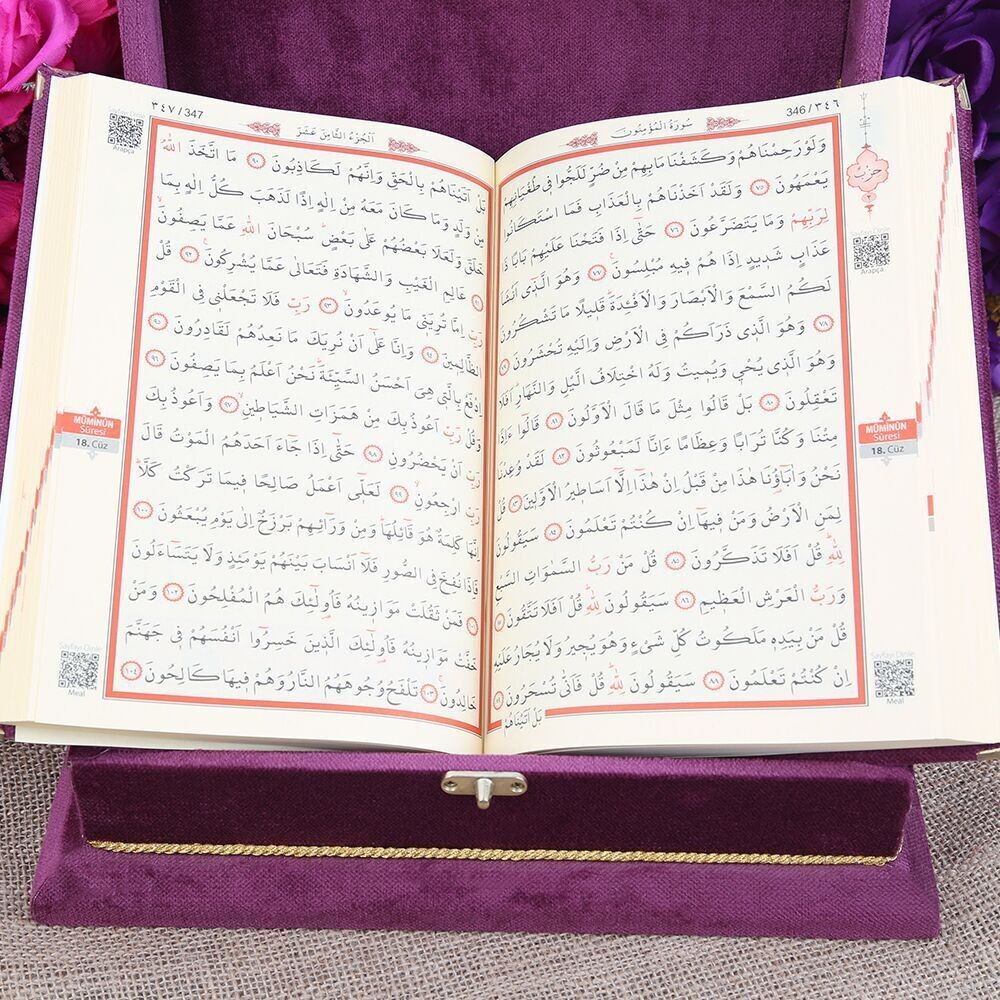 346 / ٣٤٦
سُورَةُ الْمُؤْمِنُونَ
حِزْبٌ
٢
وَلَوْ رَحِمْنَاهُمْ وَكَشَفْنَا مَابِهِمْ مِنْ ضُرٍّ لَلَجُّوا فِى طُغْيَانِهِمْ
يَعْمَهُونَ ٧٥ وَلَقَدْ اَخَذْنَاهُمْ بِالْعَذَابِ فَمَا اسْتَكَانُوا
لِرَبِّهِمْ وَمَا يَتَضَرَّعُونَ ٧٦ حَتّٰٓى اِذَا فَتَحْنَا عَلَيْهِمْ بَابًا ذَا
عَذَابٍ شَدٖيدٍ اِذَا هُمْ فٖيهِ مُبْلِسُونَ ٧٧ وَهُوَ الَّذٖٓى اَنْشَاَ
لَكُمُ السَّمْعَ وَالْاَبْصَارَ وَالْاَفْـِٔدَةَ قَلٖيلًا مَا تَشْكُرُونَ
٧٨ وَهُوَ الَّذٖى ذَرَاَكُمْ فِى الْاَرْضِ وَاِلَيْهِ تُحْشَرُونَ ٧٩
وَهُوَ الَّذٖى يُحْيٖ وَيُمٖيتُ وَلَهُ اخْتِلَافُ الَّيْلِ وَالنَّهَارِ اَفَلَا
تَعْقِلُونَ ٨٠ بَلْ قَالُوا مِثْلَ مَا قَالَ الْاَوَّلُونَ ٨١ قَالُٓوا ءَاِذَا
مِتْنَا وَكُنَّا تُرَابًا وَعِظَامًا ءَاِنَّا لَمَبْعُوثُونَ ٨٢ لَقَدْ وُعِدْنَا
نَحْنُ وَاٰبَٓاؤُ۬نَا هٰذَا مِنْ قَبْلُ اِنْ هٰذَٓا اِلَّٓا اَسَاطٖيرُ الْاَوَّلٖينَ ٨٣ قُلْ
لِمَنِ الْاَرْضُ وَمَنْ فٖيهَٓا اِنْ كُنْتُمْ تَعْلَمُونَ ٨٤ سَيَقُولُونَ
لِلّٰهِ قُلْ اَفَلَا تَذَكَّرُونَ ٨٥ قُلْ مَنْ رَبُّ السَّمٰوَاتِ السَّبْعِ
وَرَبُّ الْعَرْشِ الْعَظٖيمِ ٨٦ سَيَقُولُونَ لِلّٰهِ قُلْ اَفَلَا تَتَّقُونَ ٨٧
قُلْ مَنْ بِيَدِهٖ مَلَكُوتُ كُلِّ شَىْءٍ وَهُوَ يُجٖيرُ وَلَا يُجَارُ عَلَيْهِ
اِنْ كُنْتُمْ تَعْلَمُونَ ٨٨ سَيَقُولُونَ لِلّٰهِ قُلْ فَاَنّٰى تُسْحَرُونَ ٨٩
بَلْ اَتَيْنَاهُمْ
Arapça
MÜMİNÛN
Sûresi
18. Cüz
Sayfayı Dinle
Meal
٣٤٧ / 347
اَلْجُزْءُ الثَّامِنَ عَشَرَ
بَلْ اَتَيْنَاهُمْ بِالْحَقِّ وَاِنَّهُمْ لَكَاذِبُونَ ٩٠ مَا اتَّخَذَ اللّٰهُ
مِنْ وَلَدٍ وَمَا كَانَ مَعَهُ مِنْ اِلٰهٍ اِذًا لَذَهَبَ كُلُّ اِلٰهٍ بِمَا
خَلَقَ وَلَعَلَا بَعْضُهُمْ عَلٰى بَعْضٍ سُبْحَانَ اللّٰهِ عَمَّا يَصِفُونَ
٩١ عَالِمِ الْغَيْبِ وَالشَّهَادَةِ فَتَعَالٰى عَمَّا يُشْرِكُونَ ٩٢ قُلْ
رَبِّ اِمَّا تُرِيَنّٖى مَا يُوعَدُونَ ٩٣ رَبِّ فَلَا تَجْعَلْنٖى فِى الْقَوْمِ
الظَّالِمٖينَ ٩٤ وَاِنَّا عَلٰٓى اَنْ نُرِيَكَ مَا نَعِدُهُمْ لَقَادِرُونَ ٩٥
اِدْفَعْ بِالَّتٖى هِىَ اَحْسَنُ السَّيِّئَةَ نَحْنُ اَعْلَمُ بِمَا يَصِفُونَ ٩٦
وَقُلْ رَبِّ اَعُوذُ بِكَ مِنْ هَمَزَاتِ الشَّيَاطٖينِ ٩٧ وَاَعُوذُ بِكَ
رَبِّ اَنْ يَحْضُرُونِ ٩٨ حَتّٰٓى اِذَا جَٓاءَ اَحَدَهُمُ الْمَوْتُ قَالَ
رَبِّ ارْجِعُونِ ٩٩ لَعَلّٖٓى اَعْمَلُ صَالِحًا فٖيمَا تَرَكْتُ كَلَّا
اِنَّهَا كَلِمَةٌ هُوَ قَٓائِلُهَا وَمِنْ وَرَٓائِهِمْ بَرْزَخٌ اِلٰى يَوْمِ يُبْعَثُونَ ١٠٠
فَاِذَا نُفِخَ فِى الصُّورِ فَلَٓا اَنْسَابَ بَيْنَهُمْ يَوْمَئِذٍ وَلَا يَتَسَٓاءَلُونَ
١٠١ فَمَنْ ثَقُلَتْ مَوَازٖينُهُ فَاُولٰٓئِكَ هُمُ الْمُفْلِحُونَ ١٠٢ وَمَنْ
خَفَّتْ مَوَازٖينُهُ فَاُولٰٓئِكَ الَّذٖينَ خَسِرُٓوا اَنْفُسَهُمْ فٖى جَهَنَّمَ
خَالِدُونَ ١٠٣ تَلْفَحُ وُجُوهَهُمُ النَّارُ وَهُمْ فٖيهَا كَالِحُونَ ١٠٤
Sayfayı Dinle
Arapça
MÜMİNÛN
Sûresi
18. Cüz
Sayfayı Dinle
Meal